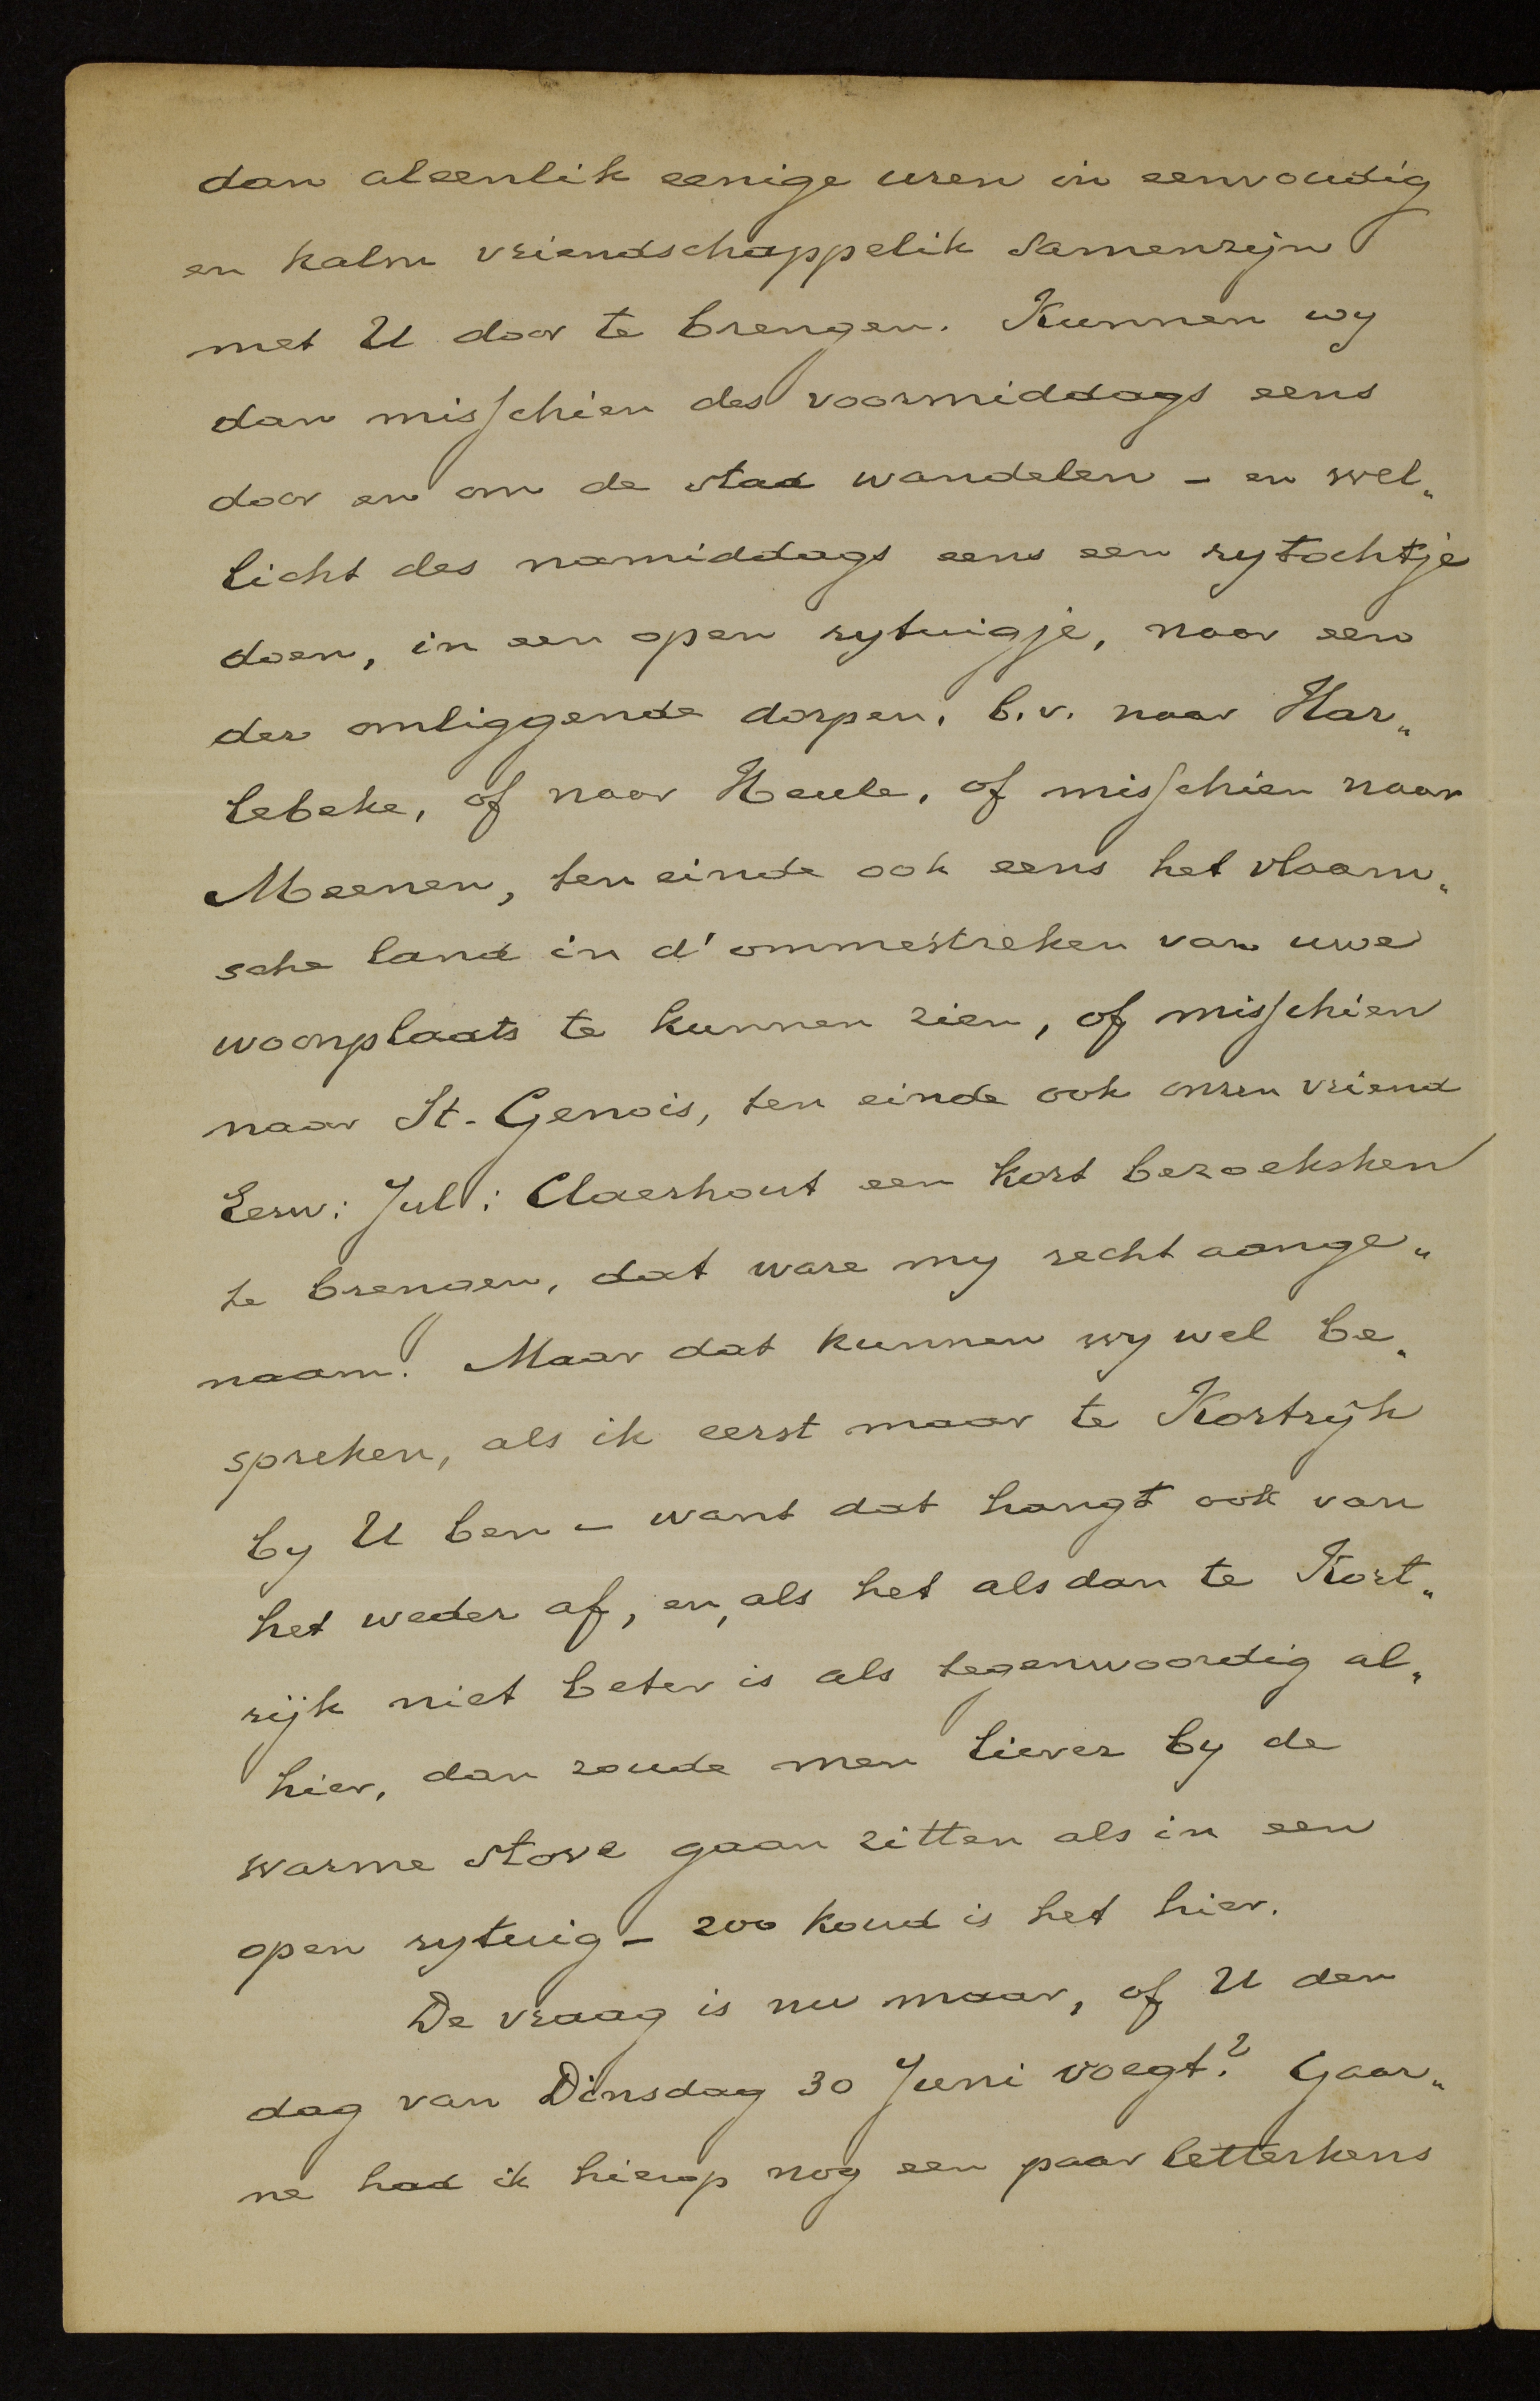 dan aleenlik eenige uren in eenvoudig
en kalm vriendschappelik samenzijn
met U door te brengen. Kunnen wy
dan misschien des voormiddags eens
door en om de stad wandelen - en wel„
licht des namiddags eens een rytochtje
doen, in een open rytuigje, naar een
der omliggende dorpen, b.v. naar Har„
lebeke, of naar Heule, of misschien naar
Meenen, ten einde ook eens het vlaam„
sche land in d' ommestreken van uwe
woonplaats te kunnen zien, of misschien
naar St. Genois, ten einde ook onzen vriend
Eerw: Jul: Claerhout een kort bezoeksken
te brengen, dat ware my recht aange„
naam. Maar dat kunnen wy wel be„
spreken, als ik eerst maar te Kortrijk
by U ben - want dat hangt ook van
het weder af, en, als het alsdan te Kort„
rijk niet beter is als tegenwoordig al„
hier, dan zoude men liever by de
warme stove gaan zitten als in een
open rytuig - zoo koud is het hier.
De vraag is nu maar, of U den
dag van Dinsdag 30 Juni voegt? Gaar„
ne had ik hierop nog een paar letterkens